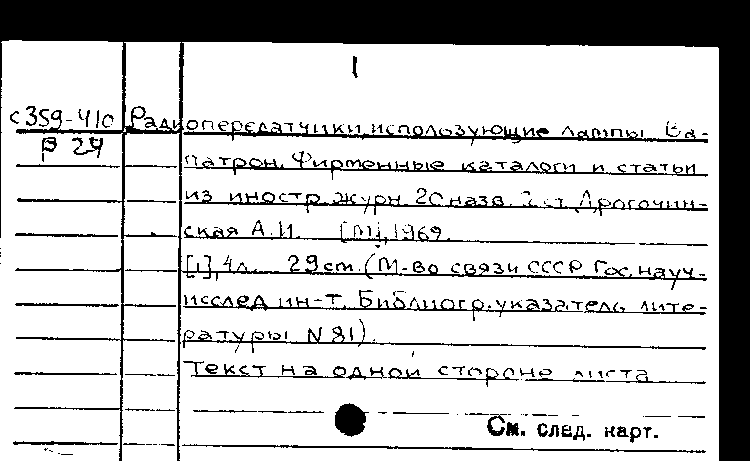 I
с359-410 Радиопередатчики, использующие лампы Ва-
Р 24
патрон. Фирменные каталоги и статьи
из иностр. журн. 20 назв. Дрогочин-
ская А.И. [М], 1969.
[1], 4 л. 29 см. (М-во связи СССР Гос. науч-
исслед. ин-т. Библиогр. указатель лите-
ратуры N 81).
Текст на одной стороне листа
См. след. карт.